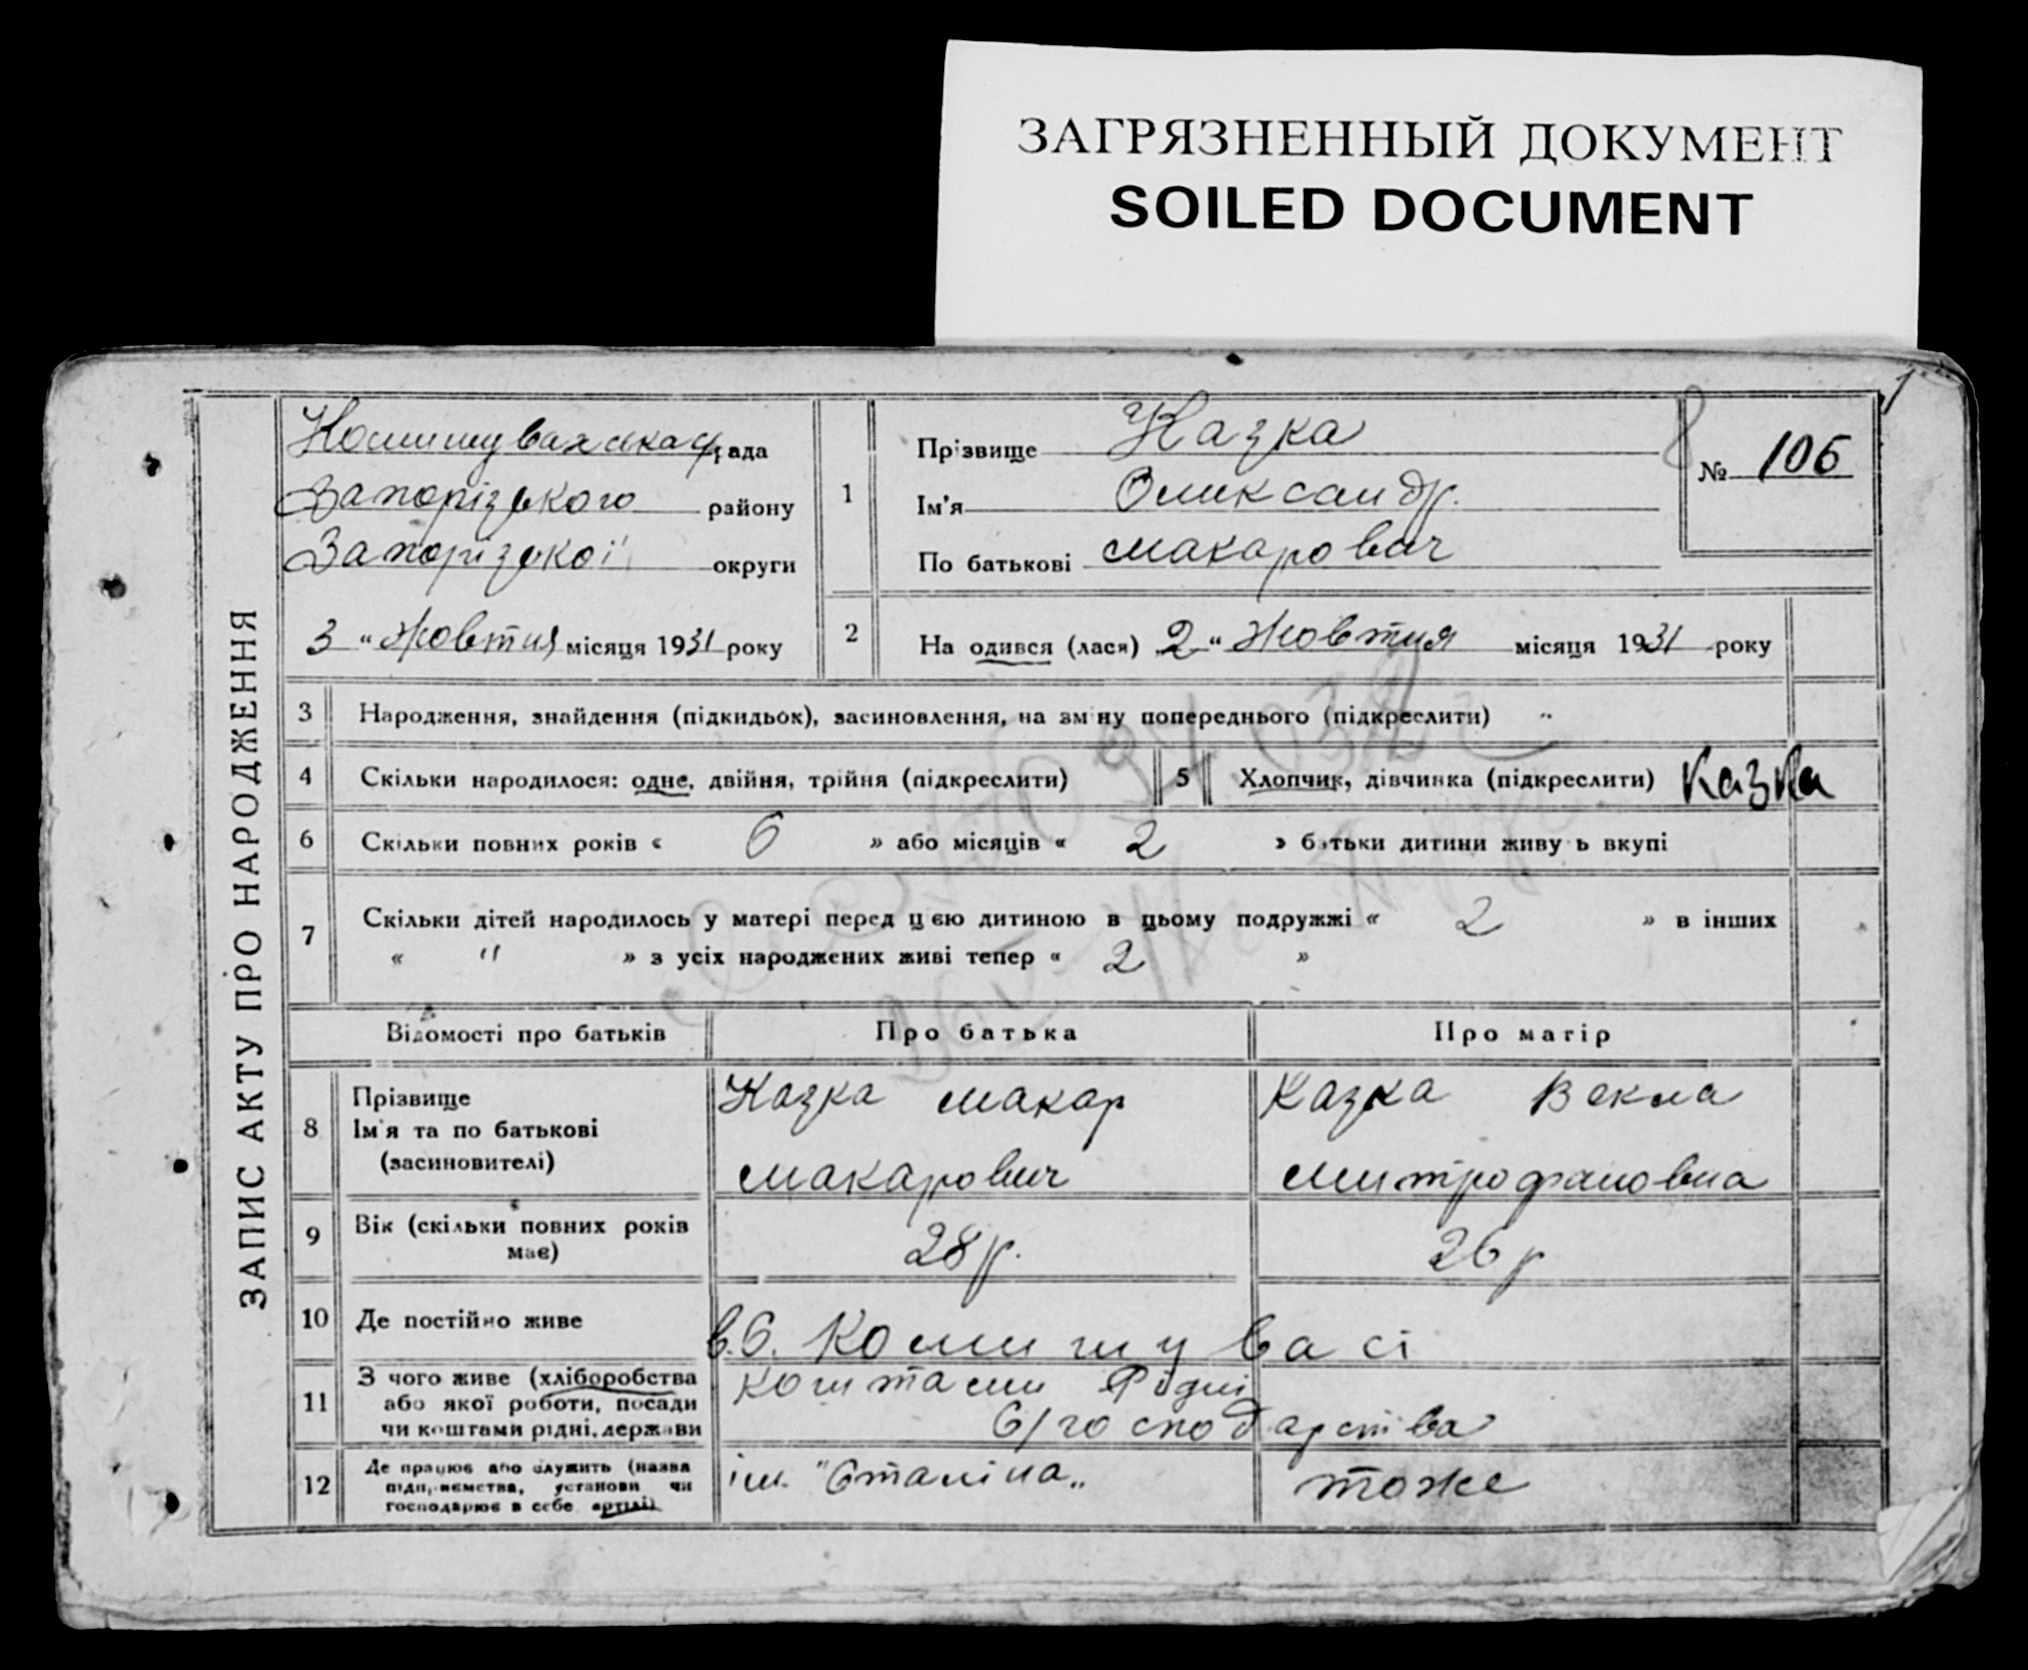 ЗАГРЯЗНЕННЫЙ ДОКУМЕНТ
SOILED DOCUMENT
ЗАПИС АКТУ ПРО НАРОДЖЕННЯ
Комишуваська рада
Запорізького району
Запорізької округи
3 " Жовтня місяця 1931 року
1
Прізвище Казка
Ім'я Олександр.
По батькові макарович
№ 106
2
На одився (лася) 2 " Жовтня місяця 1931 року
3 Народження, знайдення (підкидьок), засиновлення, на зміну попереднього (підкреслити)
4 Скільки народилося: одне, двійня, трійня (підкреслити)
5 Хлопчик, дівчинка (підкреслити) Казка
6 Скільки повних років « 6 » або місяців « 2 » батьки дитини живуть вкупі
7 Скільки дітей народилось у матері перед цією дитиною в цьому подружжі « 2 » в інших
« " » з усіх народжених живі тепер « 2 »
Відомості про батьків Про батька Про матір
8 Прізвище
Ім'я та по батькові
(засиновителі)
Казка макар
макарович
Казка Векла
митрофановна
9 Вік (скільки повних років
має)
28 р.
26 р
10 Де постійно живе
в.с. Комишувасі
11 З чого живе (хліборобства
або якої роботи, посади
чи коштами рідні, держави
коштами Рідні
с/господарства
12 Де працює або служить (назва
підприємства, установи чи
господарює в себе артілі)
ім. "Сталіна"
тоже